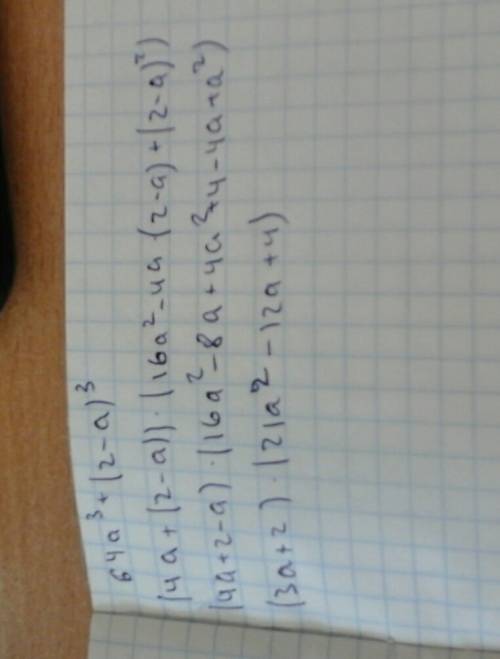 64a³+(2-a)³
(4a+(2-a))·(16a²-4a(2-a)+(2-a)²)
(4a+2-a)·(16a²-8a+4a²+4-4a+a²)
(3a+2)·(21a²-12a+4)